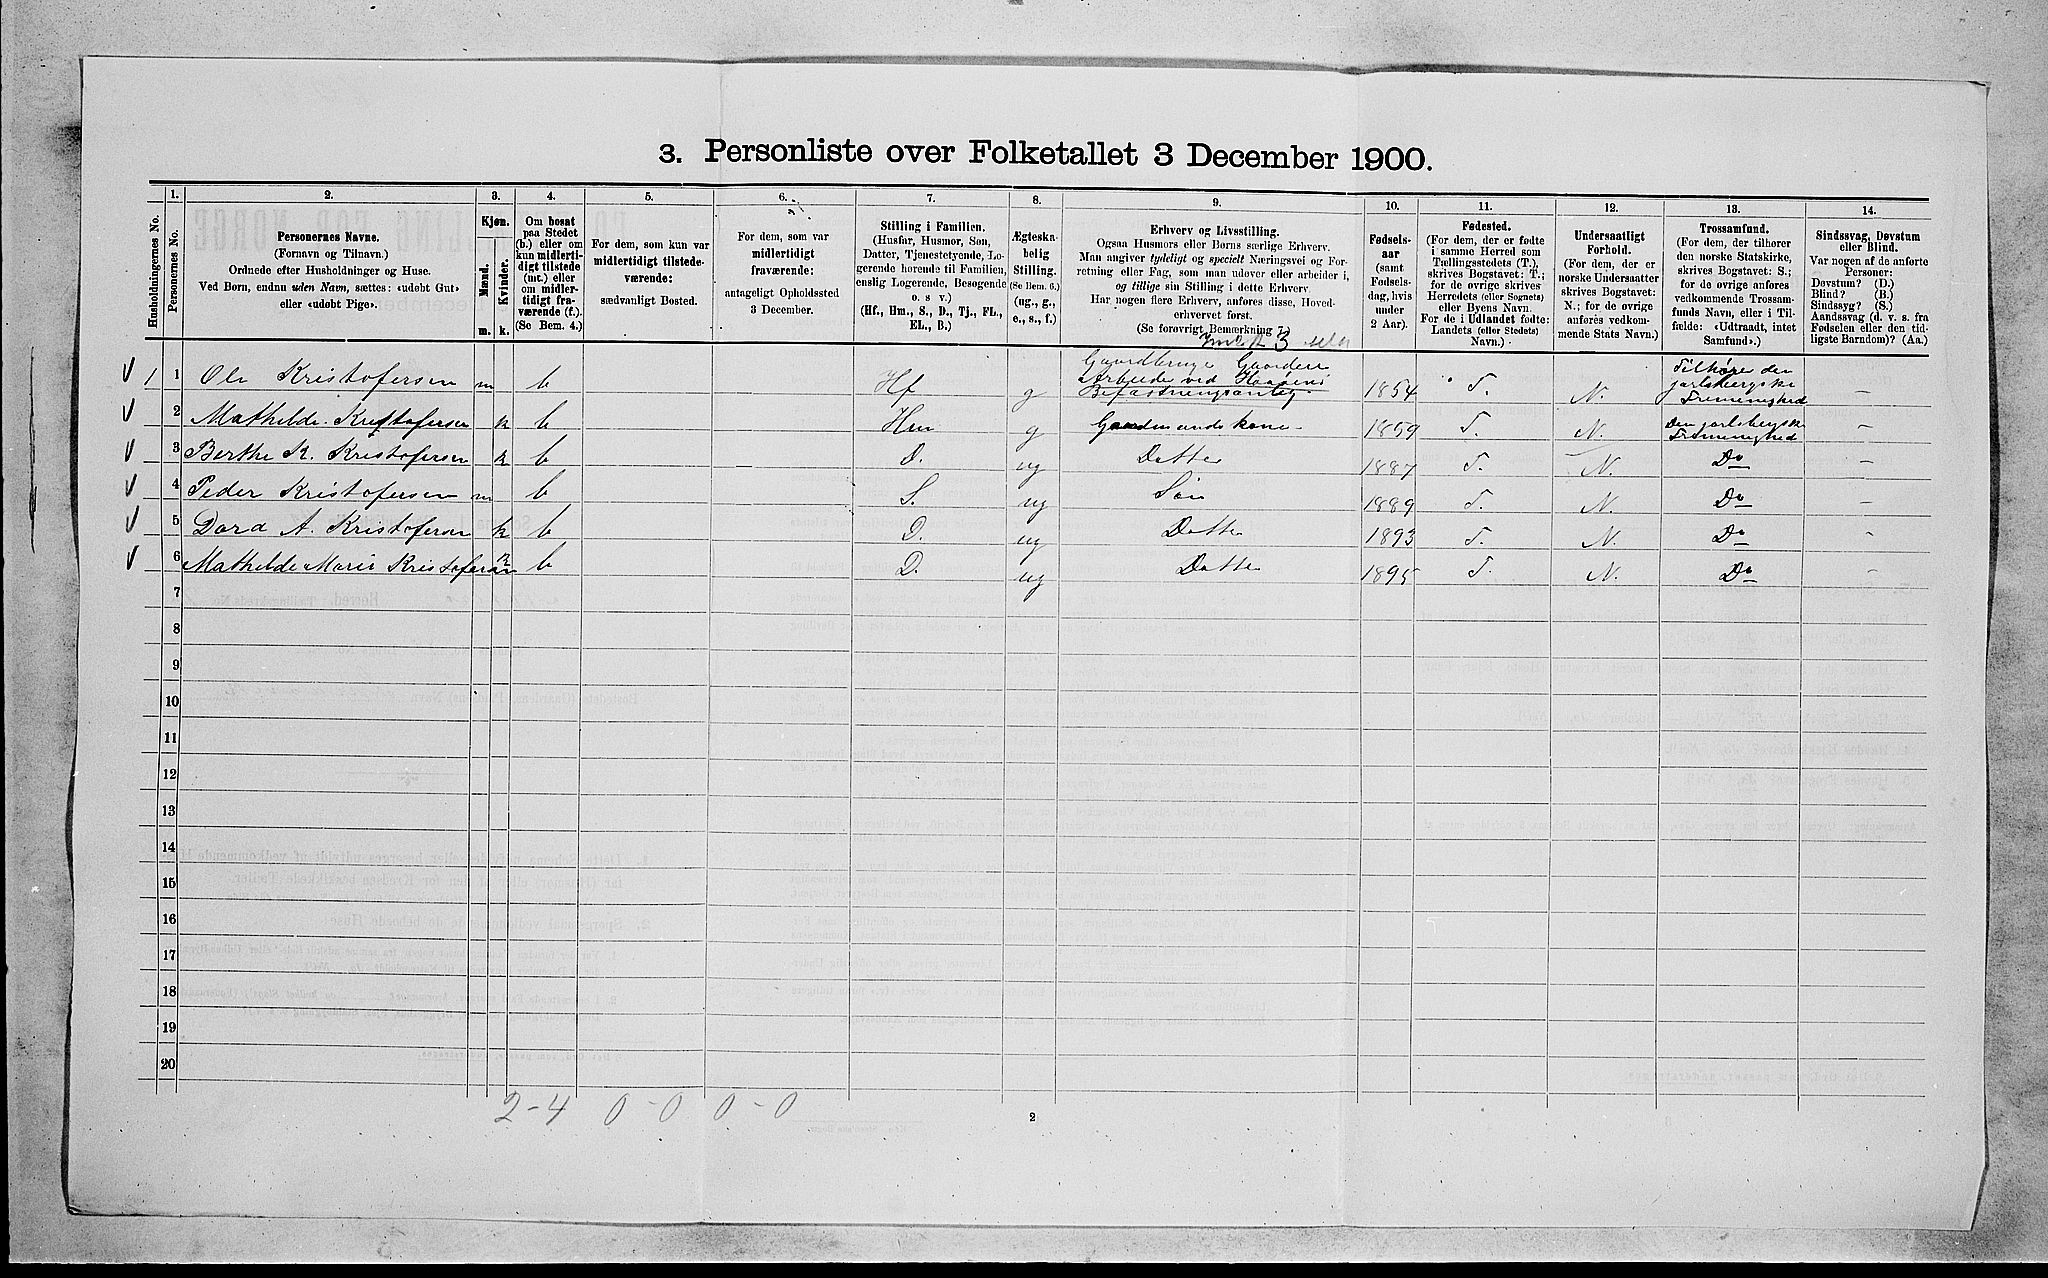 3. Personliste over Folketallet 3 December 1900.
Husholdningernes No.
1.
Personernes No.
2.
Personernes Navne.
(Fornavn og Tilnavn.)
Ordnede efter Husholdninger og Huse.
Ved Børn, endnu uden Navn, sættes: «udøbt Gut»
eller «udøbt Pige».
3.
Kjøn.
Mænd.
Kvinder.
m. k.
4.
Om bosat
paa Stedet
(b.) eller om
kun midlerti-
digt tilstede
(mt.) eller
om midler-
tidigt fra-
værende (f.).
(Se Bem. 4.)
5.
For dem, som kun var
midlertidigt tilstede-
værende:
sædvanligt Bosted.
6.
For dem, som var
midlertidigt
fraværende:
antageligt Opholdssted
3 December.
7.
Stilling i Familien.
(Husfar, Husmor, Søn,
Datter, Tjenestetyende, Lo-
gerende hørende til Familien,
enslig Logerende, Besøgende
o. s v.)
(Hf., Hm., S., D., Tj., FL.,
EL., B.)
8.
Ægteska-
belig
Stilling.
(Se Bem. 6.)
(ug., g.,
e., s., f.)
9.
Erhverv og Livsstilling.
Ogsaa Husmors eller Børns særlige Erhverv.
Man angiver tydeligt og specielt Næringsvei og For-
retning eller Fag, som man udøver eller arbeider i,
og tillige sin Stilling i dette Erhverv.
Har nogen flere Erhverv, anføres disse, Hoved-
erhvervet først.
(Se forøvrigt Bemærkning 7.)
10.
Fødsels-
aar
(samt
Fødsels-
dag, hvis
under
2 Aar).
11.
Fødested.
(For dem, der er fødte
i samme Herred som
Tællingsstedets (T.),
skrives Bogstavet: T.;
for de øvrige skrives
Herredets (eller Sognets)
eller Byens Navn.
For de i Udlandet fødte:
Landets (eller Stedets)
Navn.)
12.
Undersaatligt
Forhold.
(For dem, der er
norske Undersaatter
skrives Bogstavet:
N.; for de øvrige
anføres vedkom-
mende Stats Navn.)
13.
Trossamfund.
(For dem, der tilhører
den norske Statskirke,
skrives Bogstavet: S.;
for de øvrige anføres
vedkommende Trossam-
funds Navn, eller i Til-
fælde: «Udtraadt, intet
Samfund».)
14.
Sindssvag, Døvstum
eller Blind.
Var nogen af de anførte
Personer:
Døvstum? (D.)
Blind? (B.)
Sindssyg? (S.)
Aandssvag (d. v. s. fra
Fødselen eller den tid-
ligste Barndom)? (Aa.)
1 1 Ole Kristofersen m b Hf g Gaardbruge Arbeide ved Befæstningsanlæg 1854 T. N. Tilhøre den jarlsbergske Frimenighed –
2 Mathilde Kristofersen k b Hm g Gaardmandskone 1859 T. N. Den jarlsbergsk Frimenighed –
3 Berthe K. Kristofersen k b D. ug Datter 1887 T. N. Do –
4 Peder Kristofersen m b S. ug Søn 1889 T. N. Do –
5 Dora A. Kristofersen k b D. ug Datter 1893 T. N. Do –
6 Mathilde Marie Kristofersen k b D. ug Datter 1895 T. N. Do –
7
8
9
10
11
12
13
14
15
16
17
18
19
20
2-4 0-0 0-0
2